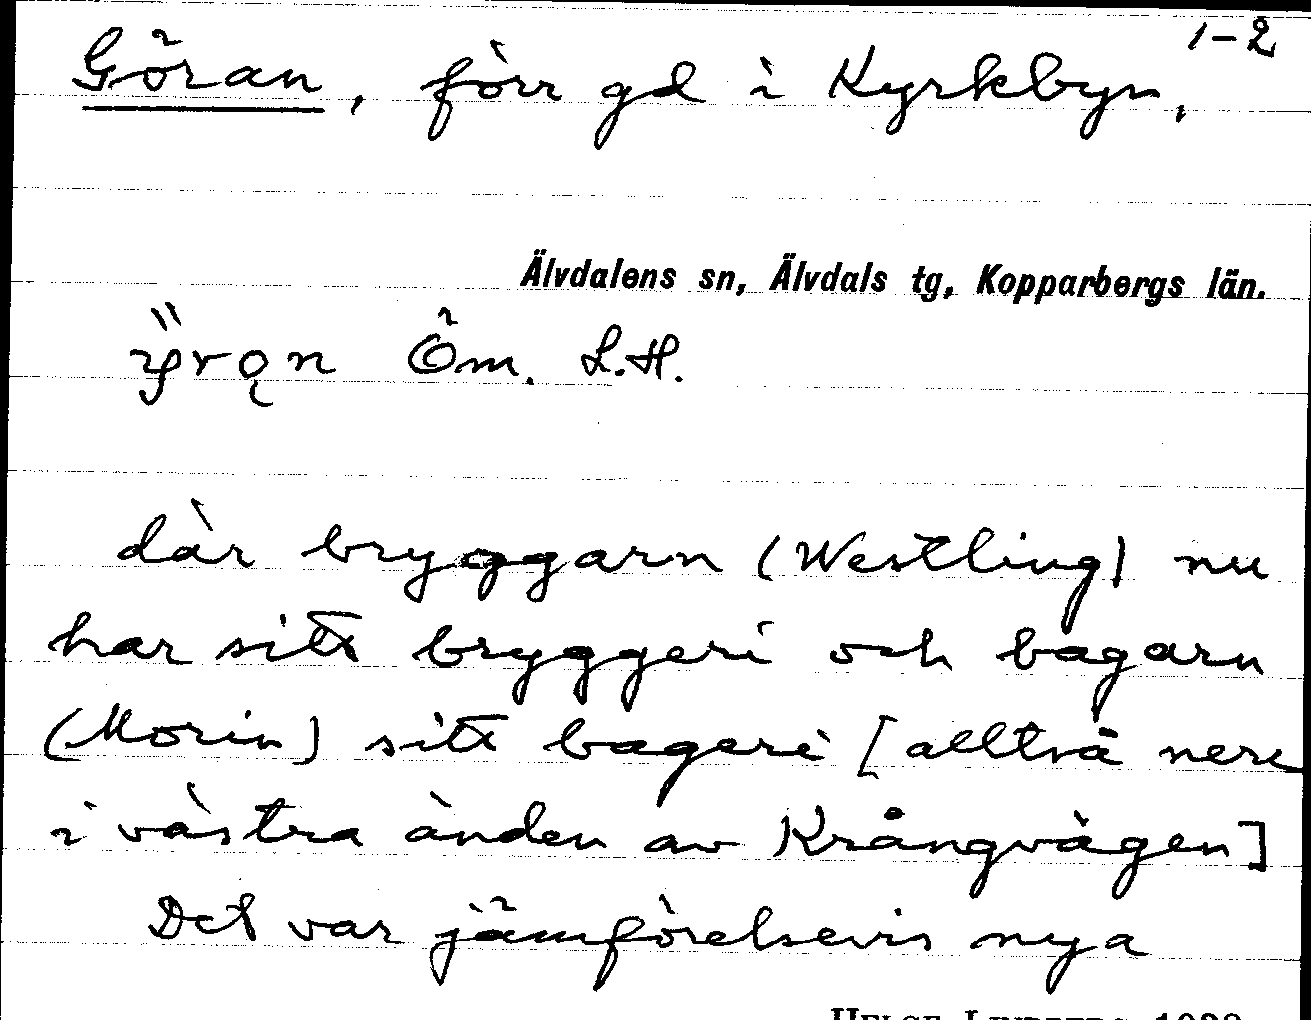 1-2
Göran, förr gd i Kyrkbyn,
Älvdalens sn, Älvdals tg, Kopparbergs län.
Öm. L.H.
där bryggarn (Westling) nu
har sitt bryggeri och bagarn
(Morin) sitt bageri [alltså nere
i västra änden av Krångvägen]
Det var jämförelsevis nya